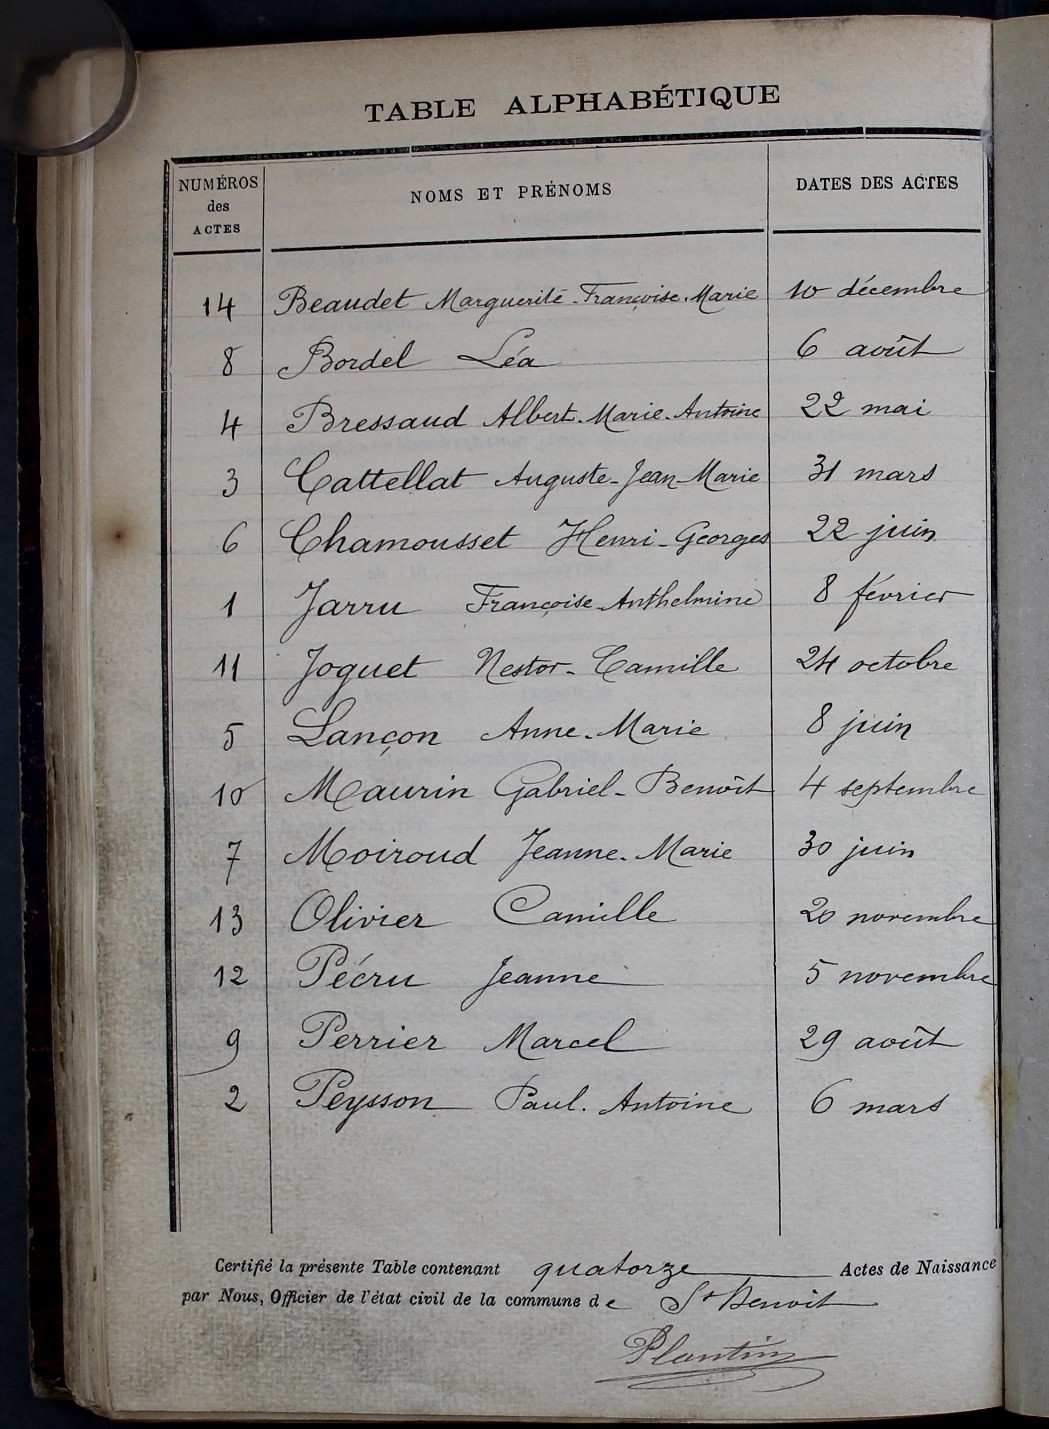 TABLE ALPHABÉTIQUE
NUMÉROS des ACTES NOMS ET PRÉNOMS DATES DES ACTES
14 Beaudet Marguerite-Françoise-Marie 10 décembre
8 Bordel Léa 6 août
4 Bressaud Albert-Marie-Antoine 22 mai
3 Cattellat Auguste-Jean-Marie 31 mars
6 Chamousset Henri-Georges 22 juin
1 Jarru Françoise-Anthelmine 8 février
11 Joguet Nestor-Camille 24 octobre
5 Lançon Anne-Marie 8 juin
10 Maurin Gabriel-Benoît 4 septembre
7 Moiroud Jeanne-Marie 30 juin
13 Olivier Camille 20 novembre
12 Pécru Jeanne 5 novembre
9 Perrier Marcel 29 août
2 Peysson Paul-Antoine 6 mars
Certifié la présente Table contenant quatorze Actes de Naissance
par Nous, Officier de l'état civil de la commune de St Benoit
Plantin